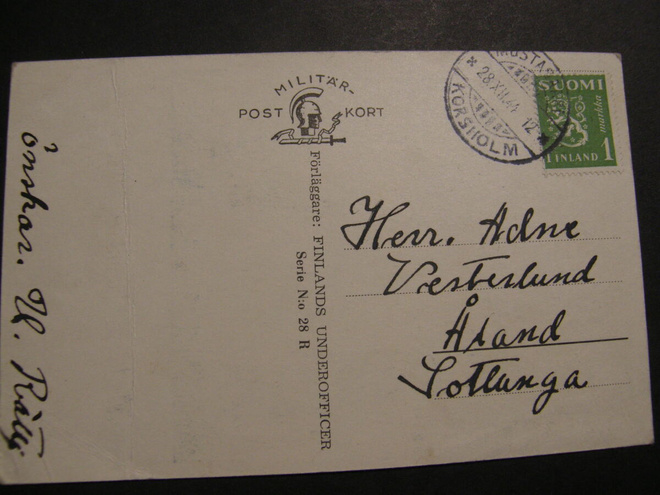 MILITÄR-
POST KORT
Förläggare: FINLANDS UNDEROFFICER
Serie N:o 28 R
KORSHOLM
28.XII.44 12
SUOMI
markka
1 FINLAND 1
Herr. Adne
Vesterlund
Åland
Sottunga
önskar. U.